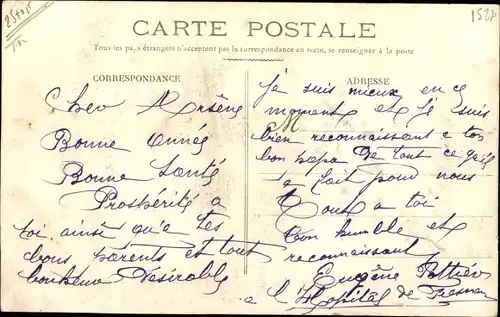 25+15
Tn
1528
CARTE POSTALE
Tous les pays étrangers n'acceptent pas la correspondance au recto, se renseigner à la poste
CORRESPONDANCE
Cher Arsène
Bonne année
Bonne Santé
Prospérité a
toi ainsi qu'a tes
bons parents et tout
bonheur Désirable
ADRESSE
Je suis mieux en ce
moment et Je suis
bien reconnaissant a ton
bon papa De tout ce qu'il
a fait pour nous
Tout a toi
Ton humble et
reconnaissant
Eugène
a l'Hopital de Fresnes